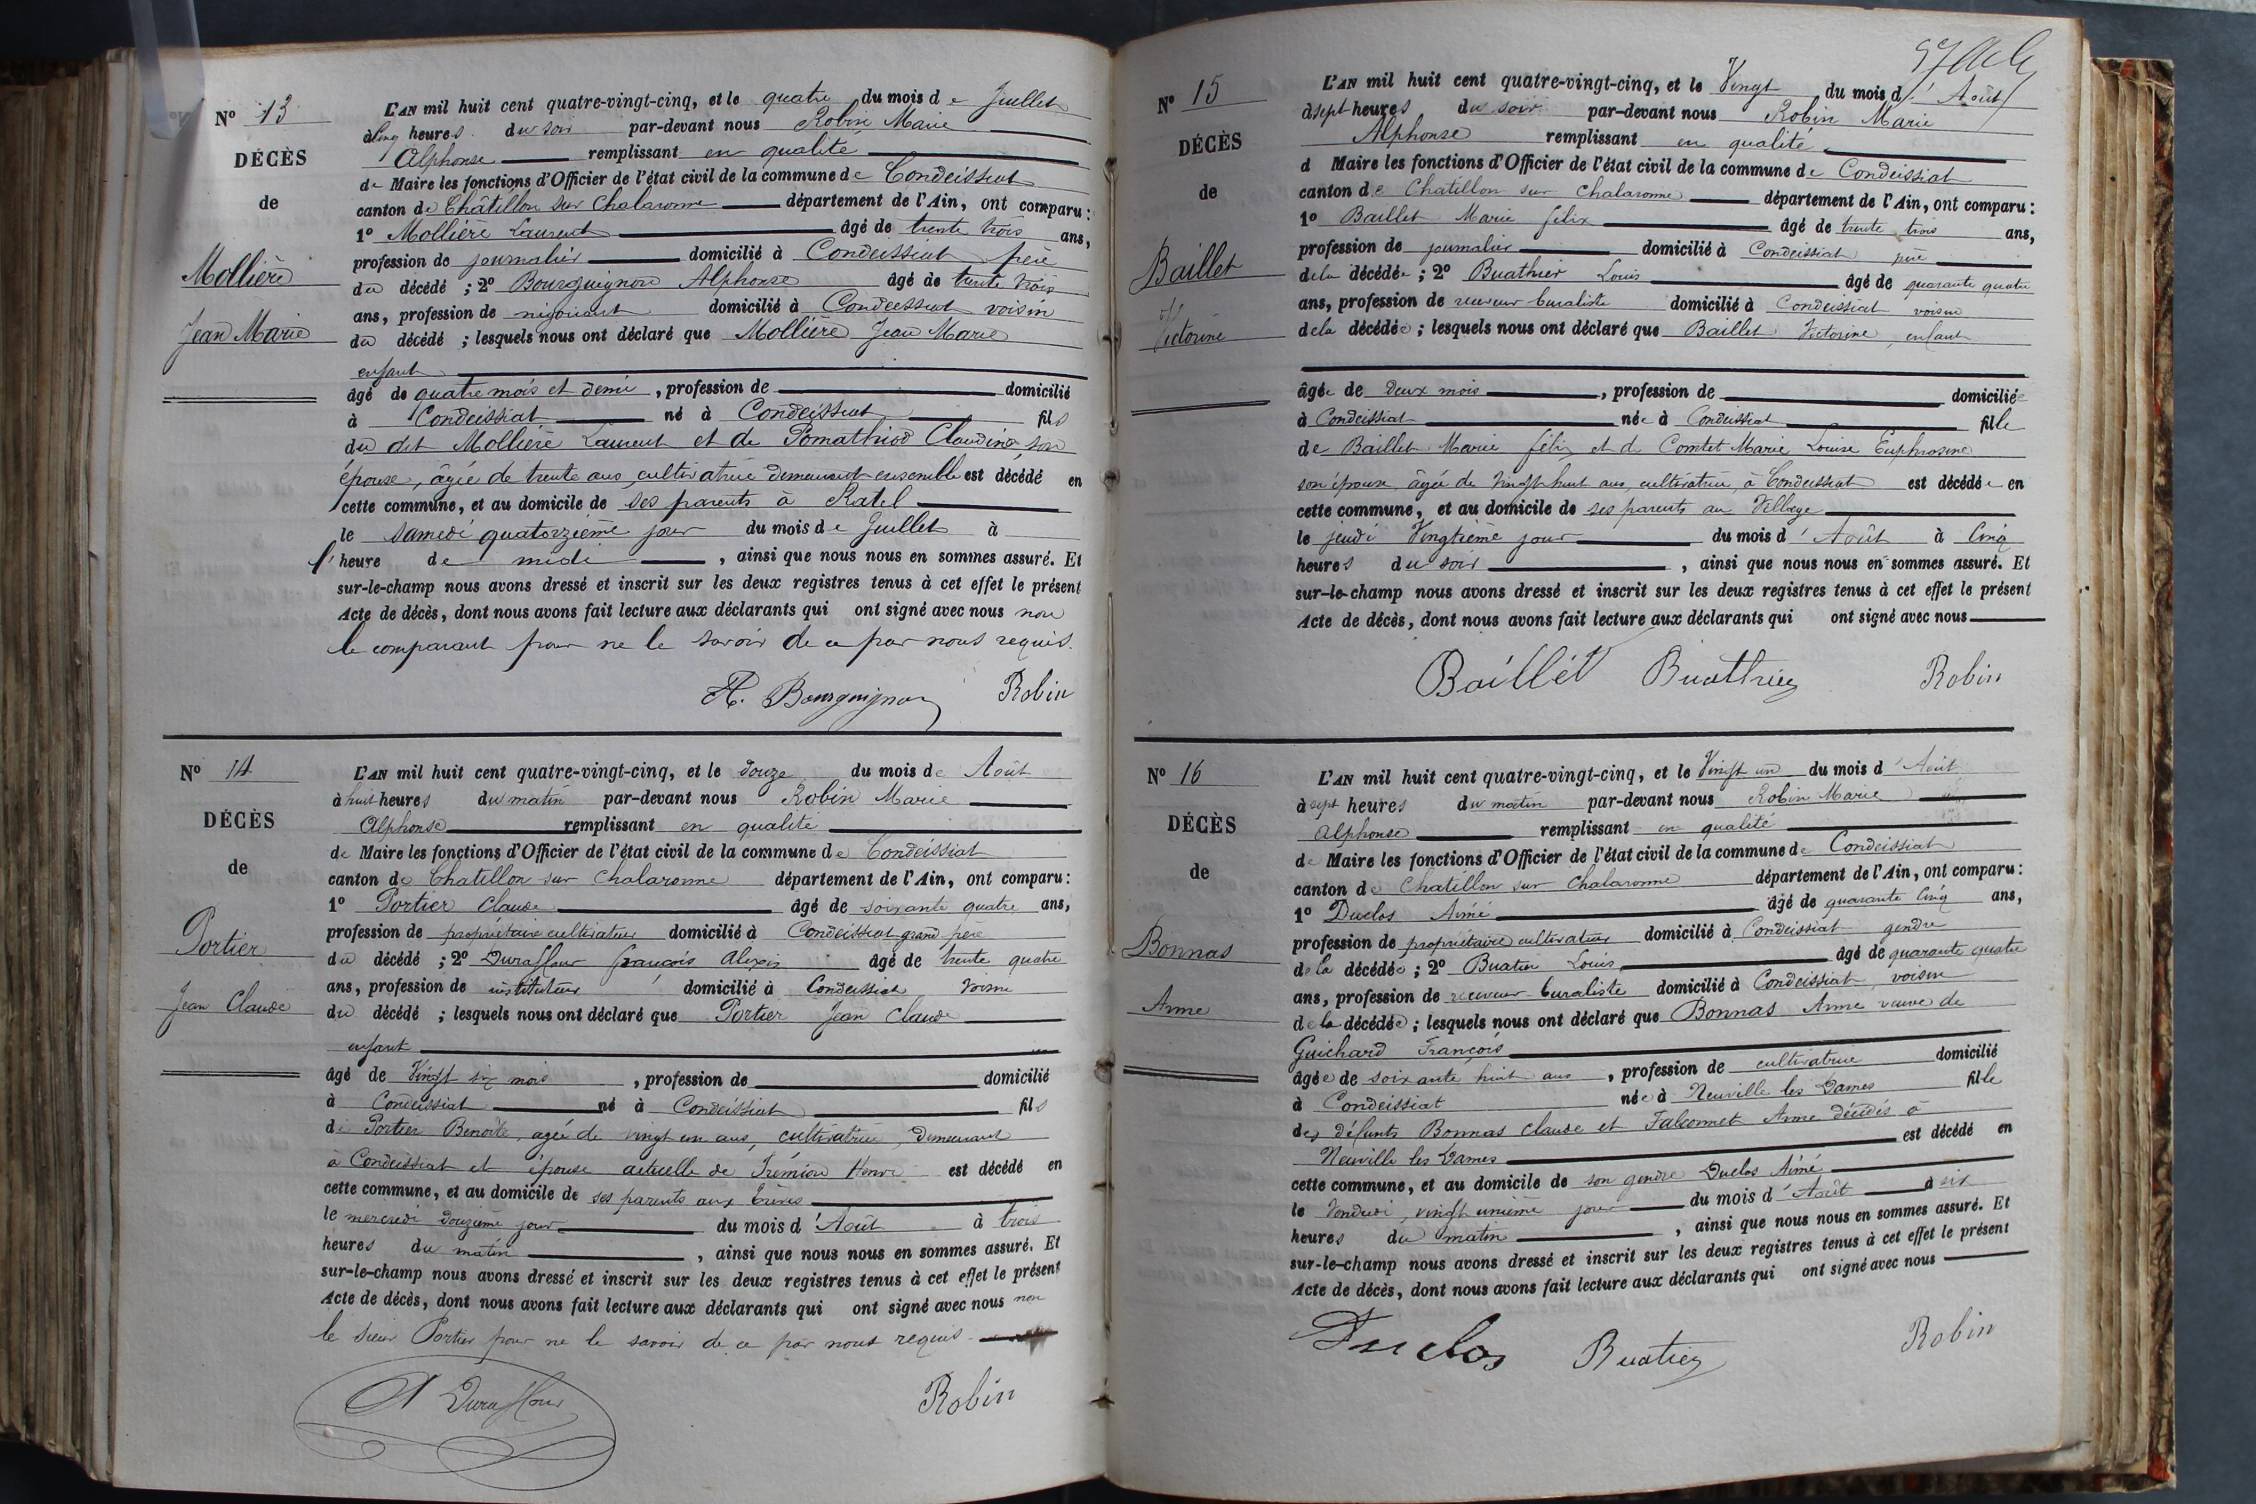 Nº 13
DÉCÈS
de
Mollière
Jean Marie
L'AN mil huit cent quatre-vingt-cinq, et le quatre du mois de Juillet
à cinq heures du soir par-devant nous Robin Marie
Alphonse remplissant en qualité
de Maire les fonctions d'Officier de l'état civil de la commune de Condeissiat
canton de Châtillon sur Chalaronne département de l'Ain, ont comparu :
1º Mollière Laurent âgé de trente trois ans,
profession de journalier domicilié à Condeissiat père
du décédé ; 2º Bourguignon Alphonse âgé de trente trois
ans, profession de négociant domicilié à Condeissiat voisin
du décédé ; lesquels nous ont déclaré que Mollière Jean Marie
enfant
âgé de quatre mois et demi , profession de domicilié
à Condeissiat né à Condeissiat fils
du dit Mollière Laurent et de Pomathiod Claudine son
épouse, âgée de trente ans cultivatrice demeurant ensemble est décédé en
cette commune, et au domicile de ses parents à Ratel
le samedi quatorzième jour du mois de Juillet à
l'heure de midi , ainsi que nous nous en sommes assuré. Et
sur-le-champ nous avons dressé et inscrit sur les deux registres tenus à cet effet le présent
Acte de décès, dont nous avons fait lecture aux déclarants qui ont signé avec nous non
le comparant pour ne le savoir de ce par nous requis.
A. Bourguignon Robin
Nº 14
DÉCÈS
de
Portier
Jean Claude
L'AN mil huit cent quatre-vingt-cinq, et le douze du mois de Août
à huit heures du matin par-devant nous Robin Marie
Alphonse remplissant en qualité
de Maire les fonctions d'Officier de l'état civil de la commune de Condeissiat
canton de Chatillon sur Chalaronne département de l'Ain, ont comparu :
1º Portier Claude âgé de soixante quatre ans,
profession de propriétaire cultivateur domicilié à Condeissiat grand père
du décédé ; 2º Duraffour françois Alexis âgé de trente quatre
ans, profession de instituteur domicilié à Condeissiat voisin
du décédé ; lesquels nous ont déclaré que Portier Jean Claude
enfant
âgé de Vingt six mois , profession de domicilié
à Condeissiat né à Condeissiat fils
de Portier Benoite, agée de vingt un ans, cultivatrice, demeurant
à Condeissiat et épouse actuelle de Trémion Henri est décédé en
cette commune, et au domicile de ses parents aux
le mercredi douzième jour du mois d'Août à trois
heures du matin , ainsi que nous nous en sommes assuré. Et
sur-le-champ nous avons dressé et inscrit sur les deux registres tenus à cet effet le présent
Acte de décès, dont nous avons fait lecture aux déclarants qui ont signé avec nous non
le sieur Portier pour ne le savoir de ce par nous requis
A Duraffour Robin
Nº 15
DÉCÈS
de
Baillet
Victorine
L'AN mil huit cent quatre-vingt-cinq, et le Vingt du mois d'Août
à sept heures du soir par-devant nous Robin Marie
Alphonse remplissant en qualité
d Maire les fonctions d'Officier de l'état civil de la commune de Condeissiat
canton de Chatillon sur Chalaronne département de l'Ain, ont comparu :
1º Baillet Marie félix âgé de trente trois ans,
profession de journalier domicilié à Condeissiat père
de la décédée ; 2º Buathier Louis âgé de quarante quatre
ans, profession de receveur buraliste domicilié à Condeissiat voisin
de la décédée ; lesquels nous ont déclaré que Baillet Victorine, enfant
âgée de deux mois , profession de domiciliée
à Condeissiat née à Condeissiat fille
de Baillet Marie félix et de Comtet Marie Louise Euphrosine
son épouse, âgée de vingt huit ans, cultivatrice, à Condeissiat est décédée en
cette commune, et au domicile de ses parents au Village
le jeudi Vingtième jour du mois d'Août à Cinq
heures du soir , ainsi que nous nous en sommes assuré. Et
sur-le-champ nous avons dressé et inscrit sur les deux registres tenus à cet effet le présent
Acte de décès, dont nous avons fait lecture aux déclarants qui ont signé avec nous
Baillet Buathier Robin
Nº 16
DÉCÈS
de
Bonnas
Anne
L'AN mil huit cent quatre-vingt-cinq, et le Vingt un du mois d'Août
à sept heures du matin par-devant nous Robin Marie
Alphonse remplissant en qualité
de Maire les fonctions d'Officier de l'état civil de la commune de Condeissiat
canton de Chatillon sur Chalaronne département de l'Ain, ont comparu :
1º Duclos Aimé âgé de quarante Cinq ans,
profession de propriétaire cultivateur domicilié à Condeissiat gendre
de la décédée ; 2º Buatier Louis âgé de quarante quatre
ans, profession de receveur-buraliste domicilié à Condeissiat, voisin
de la décédée ; lesquels nous ont déclaré que Bonnas Anne veuve de
Guichard François
âgée de soixante huit ans , profession de cultivatrice domicilié
à Condeissiat née à Neuville les Dames fille
des défunts Bonnas Claude et Falconnet Anne décédés à
Neuville les Dames est décédé en
cette commune, et au domicile de son gendre Duclos Aimé
le Vendredi, vingt unième jour du mois d'Août à six
heures du matin , ainsi que nous nous en sommes assuré. Et
sur-le-champ nous avons dressé et inscrit sur les deux registres tenus à cet effet le présent
Acte de décès, dont nous avons fait lecture aux déclarants qui ont signé avec nous
Duclos Buatier Robin